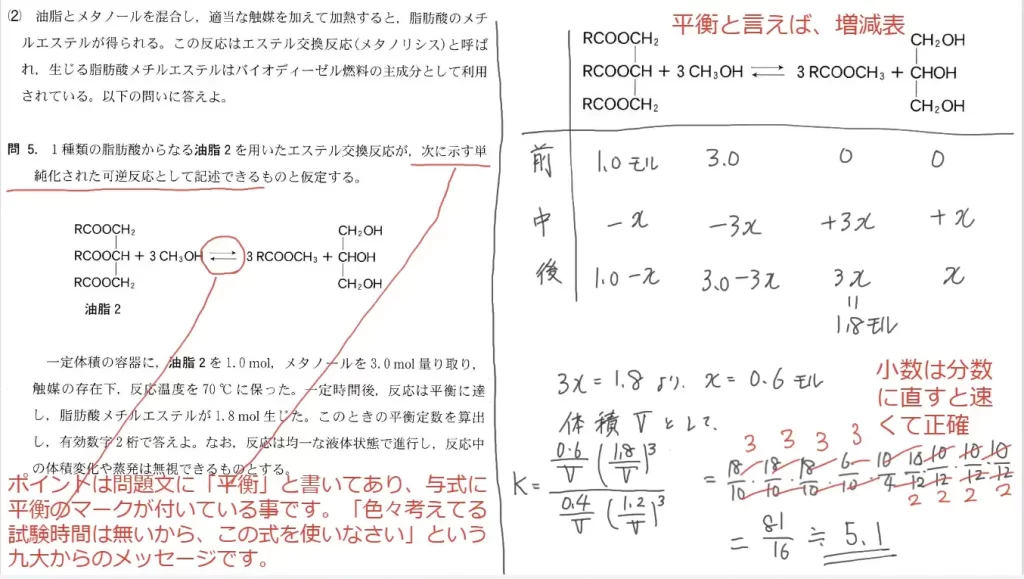 (2) 油脂とメタノールを混合し，適当な触媒を加えて加熱すると，脂肪酸のメチ
ルエステルが得られる。この反応はエステル交換反応(メタノリシス)と呼ば
れ，生じる脂肪酸メチルエステルはバイオディーゼル燃料の主成分として利用
されている。以下の問いに答えよ。
問 5. 1種類の脂肪酸からなる油脂2を用いたエステル交換反応が，次に示す単
純化された可逆反応として記述できるものと仮定する。
RCOOCH₂ CH₂OH
RCOOCH + 3 CH₃OH ⇄ 3 RCOOCH₃ + CHOH
RCOOCH₂ CH₂OH
油脂2
一定体積の容器に，油脂2を1.0 mol，メタノールを3.0 mol量り取り，
触媒の存在下，反応温度を70℃に保った。一定時間後，反応は平衡に達
し，脂肪酸メチルエステルが1.8 mol生じた。このときの平衡定数を算出
し，有効数字2桁で答えよ。なお，反応は均一な液体状態で進行し，反応中
の体積変化や蒸発は無視できるものとする。
ポイントは問題文に「平衡」と書いてあり、与式に
平衡のマークが付いている事です。「色々考えてる
試験時間は無いから、この式を使いなさい」という
九大からのメッセージです。
平衡と言えば、増減表
RCOOCH₂ CH₂OH
RCOOCH + 3 CH₃OH ⇄ 3 RCOOCH₃ + CHOH
RCOOCH₂ CH₂OH
前 1.0モル 3.0 0 0
中 -x -3x +3x +x
後 1.0-x 3.0-3x 3x x
=
1.8モル
3x=1.8 より、x=0.6 モル
体積Vとして、
小数は分数
に直すと速
くて正確
K= 0.6/V (1.8/V)³ / 0.4/V (1.2/V)³
3 3 3 3
= 18/10・18/10・18/10・6/10・10/4・10/12・10/12・10/12・10/12
2 2 2 2
= 81/16 ≒ 5.1